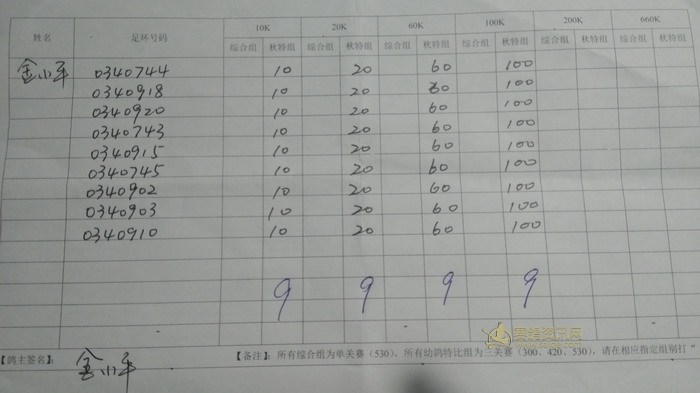 姓名 足环号码 10K 20K 60K 100K 200K 660K
综合组 秋特组 综合组 秋特组 综合组 秋特组 综合组 秋特组 综合组 秋特组 综合组 秋特组
金小平 0340744 10 20 60 100
0340918 10 20 60 100
0340920 10 20 60 100
0340743 10 20 60 100
0340915 10 20 60 100
0340745 10 20 60 100
0340902 10 20 60 100
0340903 10 20 60 100
0340910 10 20 60 100
9 9 9 9
【鸽主签名】: 金小平 【备注】:所有综合组为单关赛(530),所有幼鸽特比组为三关赛(300、420、530),请在相应指定组别打"